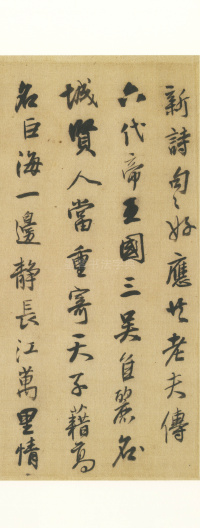 新詩句〻好應老夫傳
六代帝王國三吳麗名
城賢人當重寄天子藉高
名巨海一邊静長江萬里情